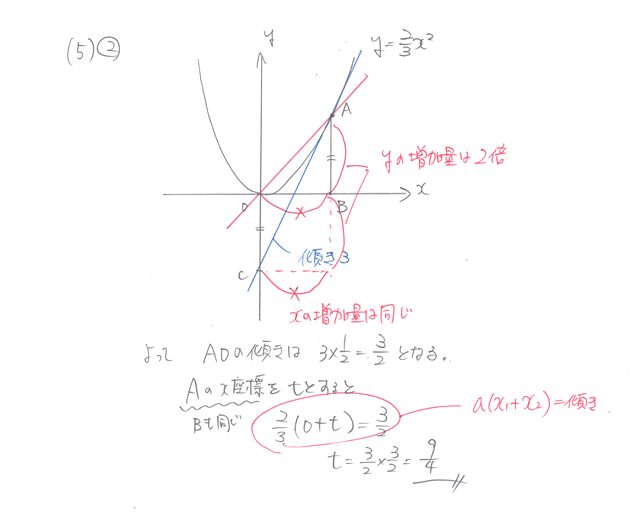 (5)②
y
y=2/3x²
A
yの増加量は2倍
x
O
B
傾き3
C
xの増加量は同じ
よって AOの傾きは 3×1/2=3/2 となる。
Aのx座標をtとすると
Bも同じ
2/3(0+t)=3/2
a(x₁+x₂)=傾き.
t=3/2×3/2=9/4